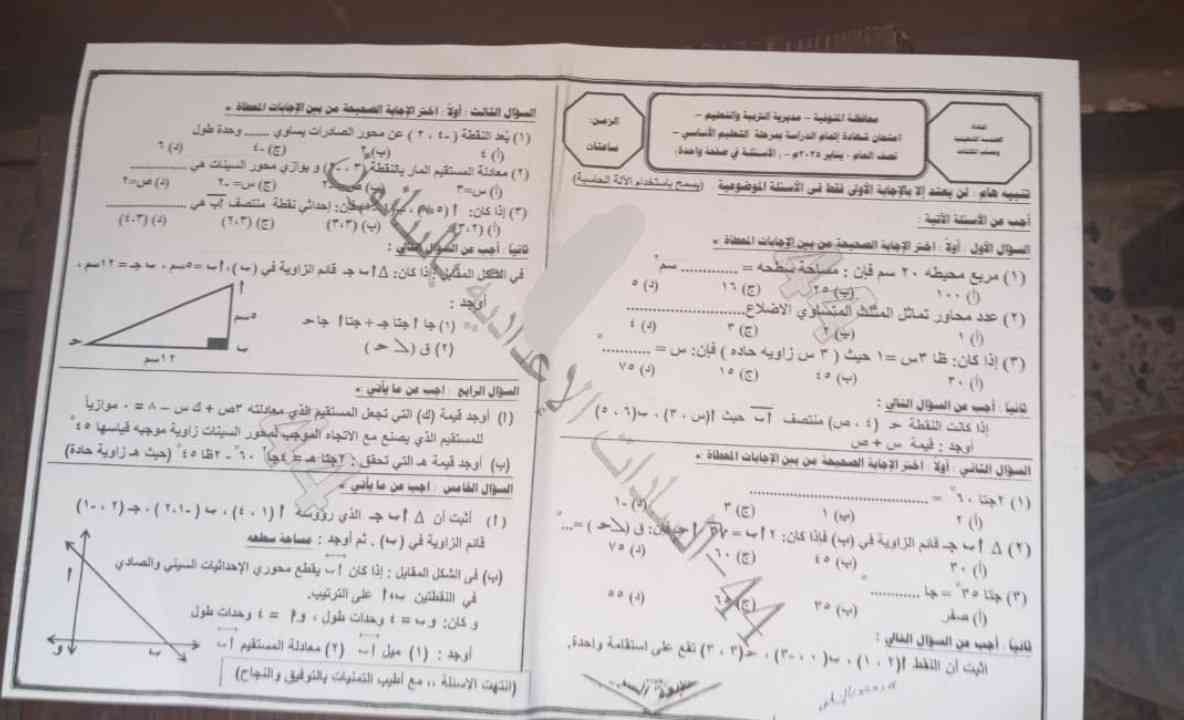 محافظة المنوفية - مديرية التربية والتعليم -
امتحان شهادة إتمام الدراسة بمرحلة التعليم الأساسي -
نصف العام - يناير ٢٠٢٥م - ( الأسئلة في صفحة واحدة)
الزمن:
ساعتان
تنبيه هام : لن يعتد إلا بالإجابة الأولى فقط فى الأسئلة الموضوعية (يسمح باستخدام الآلة الحاسبة)
أجب عن الأسئلة الآتية :
السؤال الأول : أولاً : اختر الإجابة الصحيحة من بين الإجابات المعطاة :
(١) مربع محيطه ٢٠ سم فإن : مساحة سطحه = ............ سم٢
(أ) ١٠٠ (ب) ٢٥ (ج) ١٦ (د) ٥
(٢) عدد محاور تماثل المثلث المتساوي الاضلاع ............
(أ) ١ (ب) ٢ (ج) ٣ (د) ٤
(٣) إذا كان: ظا ٣س = ١ حيث ( ٣ س زاويه حاده ) فإن: س = ............°
(أ) ٣٠ (ب) ٤٥ (ج) ١٥ (د) ٧٥
ثانياً : أجب عن السؤال التالي :
إذا كانت النقطة حـ (٤ ، ص) منتصف أب حيث أ(س ، ٣) ، ب(٦ ، ٥)
أوجد : قيمة س + ص
السؤال الثاني : أولاً : اختر الإجابة الصحيحة من بين الإجابات المعطاة :
(١) ٢جتا ٦٠° = ............
(أ) ٢ (ب) ١ (ج) ٣ (د) -١
(٢) Δ أ ب جـ قائم الزاوية في (ب) فإذا كان: ٢ أ ب = √٣ أ حـ فإن: ق (∠حـ) = ...°
(أ) ٣٠ (ب) ٤٥ (ج) ٦٠ (د) ٧٥
(٣) جتا ٣٥° = جا ............°
(أ) صفر (ب) ٣٥ (ج) ٦٥ (د) ٥٥
ثانياً : أجب عن السؤال التالي :
اثبت أن النقط أ(٢ ، ١) ، ب(٠ ، -٣) ، حـ(٣ ، ٣) تقع على استقامة واحدة.
السؤال الثالث : أولاً : اختر الإجابة الصحيحة من بين الإجابات المعطاة :
(١) بُعد النقطة (-٤ ، ٢) عن محور الصادرات يساوي ...... وحدة طول
(أ) ٤ (ب) ٢ (ج) -٤ (د) ٦
(٢) معادلة المستقيم المار بالنقطة (٣ ، -٢) و يوازي محور السينات هي ............
(أ) س=٣ (ج) س= -٢ (د) ص=٢
(٣) إذا كان: أ (٥ فإن: إحداثي نقطة منتصف أب هي ............
(أ) (٣،٢) (ب) (٣،٣) (ج) (٢،٣) (د) (٤،٣)
ثانياً : أجب عن السؤال التالي :
في الشكل المقابل : إذا كان: Δ أ ب جـ قائم الزاوية في (ب)، أب=٥سم ، ب جـ = ١٢سم ،
أوجد :
(١) جا أ جتا جـ + جتا أ جا حـ
(٢) ق (∠ حـ )
أ
٥سم
ب
حـ
١٢سم
السؤال الرابع : أجب عن ما يأتي :
(أ) أوجد قيمة (ك) التي تجعل المستقيم الذي معادلته ٣ص + ك س - ٨ = ٠ موازياً
للمستقيم الذي يصنع مع الاتجاه الموجب لمحور السينات زاوية موجبه قياسها ٤٥°
(ب) أوجد قيمة هـ التي تحقق : ٢جتا هـ = ٤جا٢ ٦٠° - ٢ظا ٤٥° (حيث هـ زاوية حادة)
السؤال الخامس : أجب عن ما يأتي :
(أ) أثبت أن Δ أ ب جـ الذي رؤوسه أ (١ ، ٤) ، ب (-١، ٢) ، جـ (٢ ، -١)
قائم الزاوية في (ب) . ثم أوجد : مساحة سطحه
(ب) فى الشكل المقابل : إذا كان أ ب يقطع محوري الإحداثيات السيني والصادي
في النقطتين ب، أ على الترتيب.
و كان: و ب = ٤ وحدات طول ، و أ = ٤ وحدات طول
أوجد : (١) ميل أ ب (٢) معادلة المستقيم أ ب
أ
و
ب
(انتهت الاسئلة ،، مع أطيب التمنيات بالتوفيق والنجاح)